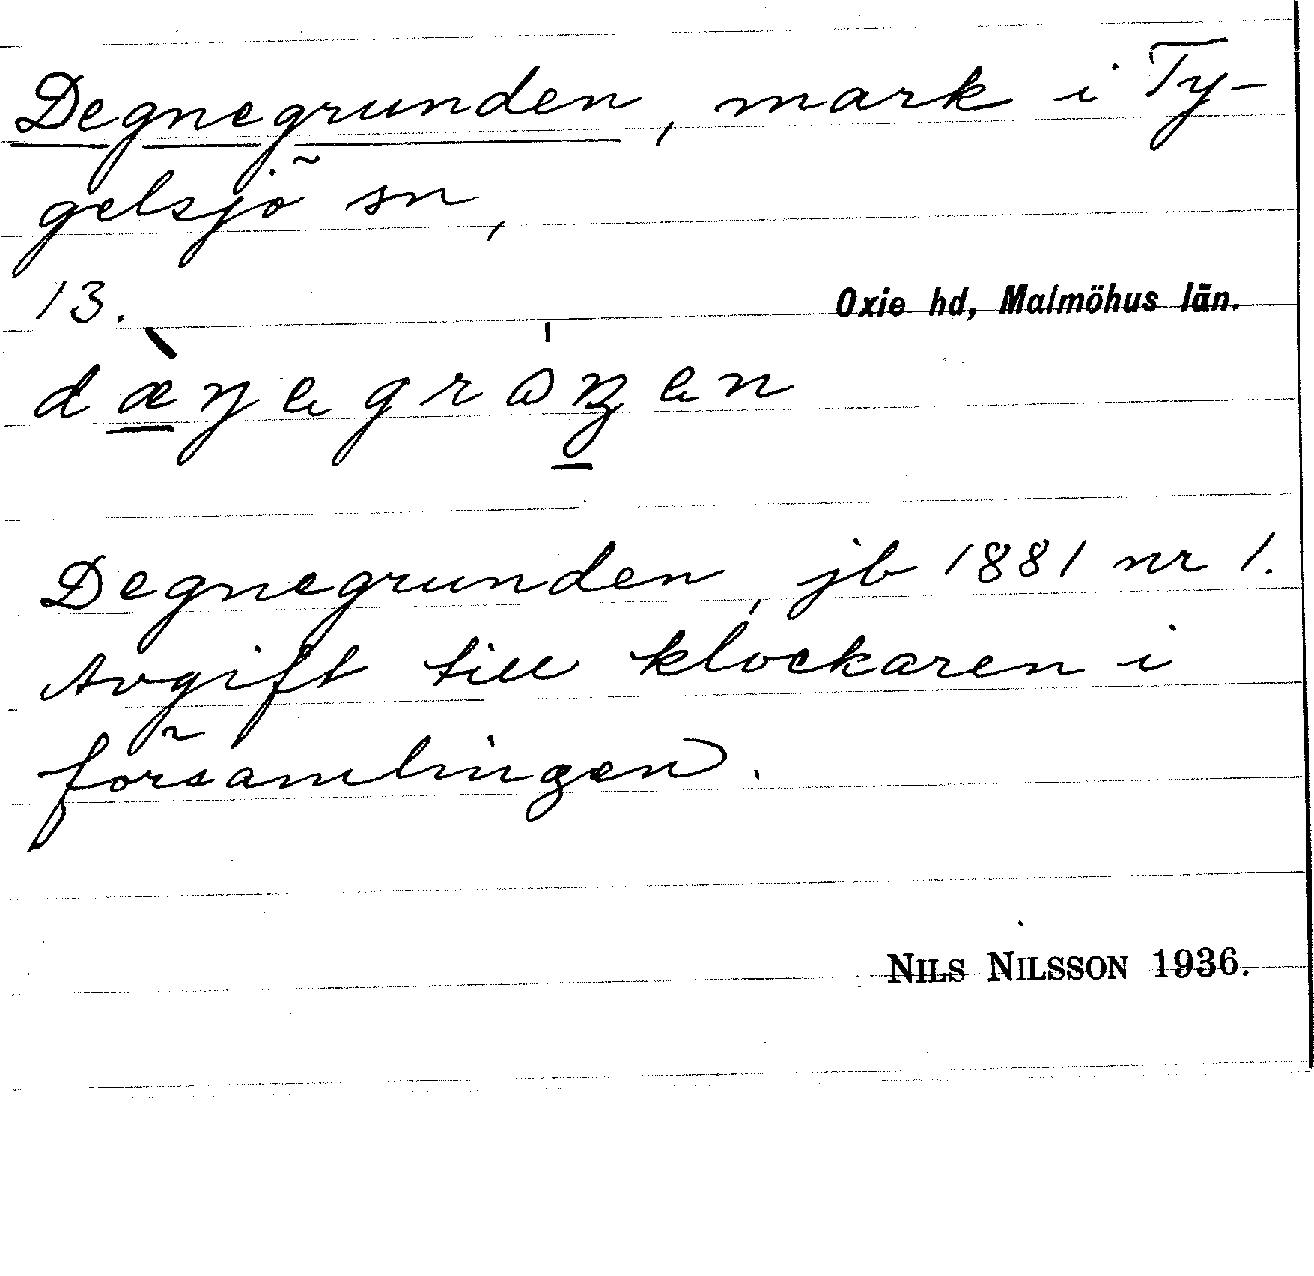 Degnegrunden, mark i Ty-
gelsjö sn,
13.
Oxie hd, Malmöhus län.
Degnegrunden, jb 1881 nr 1.
Avgift till klockaren i
församlingen.
NILS NILSSON 1936.